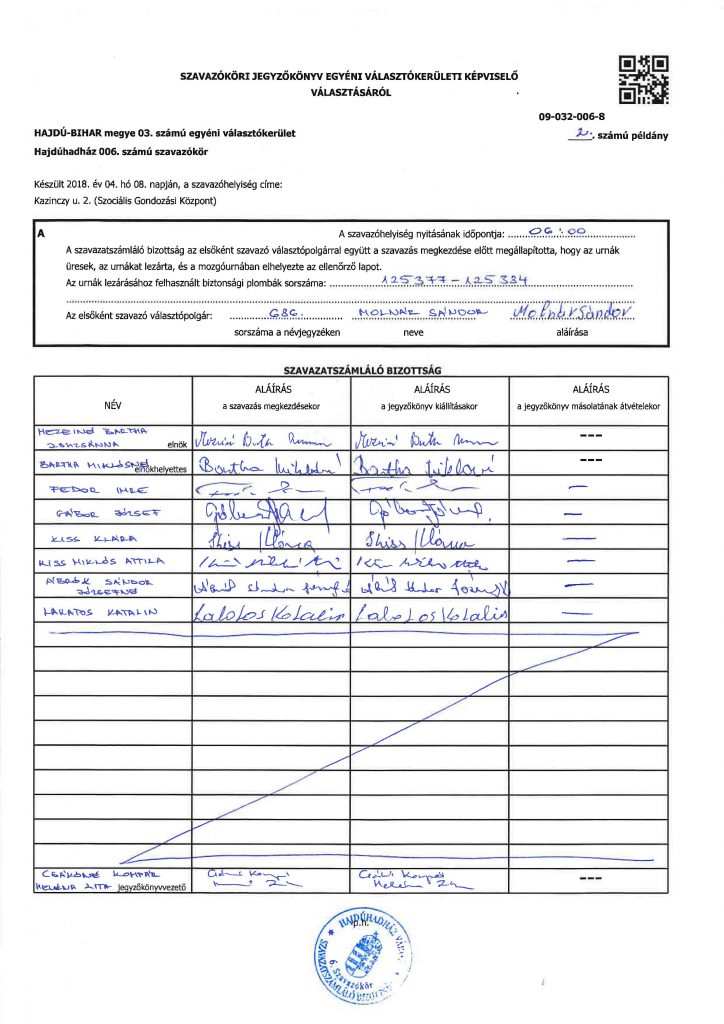 SZAVAZÓKÖRI JEGYZŐKÖNYV EGYÉNI VÁLASZTÓKERÜLETI KÉPVISELŐ
VÁLASZTÁSÁRÓL
09-032-006-8
HAJDÚ-BIHAR megye 03. számú egyéni választókerület
2. számú példány
Hajdúhadház 006. számú szavazókör
Készült 2018. év 04. hó 08. napján, a szavazóhelyiség címe:
Kazinczy u. 2. (Szociális Gondozási Központ)
A
A szavazóhelyiség nyitásának időpontja: 06:00
A szavazatszámláló bizottság az elsőként szavazó választópolgárral együtt a szavazás megkezdése előtt megállapította, hogy az urnák
üresek, az urnákat lezárta, és a mozgóurnában elhelyezte az ellenőrző lapot.
Az urnák lezárásához felhasznált biztonsági plombák sorszáma: 125377-125334
Az elsőként szavazó választópolgár: 686. MOLNÁR SÁNDOR Molnár Sándor
sorszáma a névjegyzéken neve aláírása
SZAVAZATSZÁMLÁLÓ BIZOTTSÁG
NÉV
ALÁÍRÁS
a szavazás megkezdésekor
ALÁÍRÁS
a jegyzőkönyv kiállításakor
ALÁÍRÁS
a jegyzőkönyv másolatának átvételekor
MEZEINÉ BARTHA
ZSUZSÁNNA elnök ---
BARTHA MIKLÓSNÉ elnökhelyettes Bartha Miklósné Bartha Miklósné ---
FEDOR IMRE —
GÁBOR JÓZSEF —
KISS KLÁRA Kiss Klára Kiss Klára —
KISS MIKLÓS ATTILA —
SÁNDOR
JÓZSEFNÉ —
LAKATOS KATALIN Lakatos Katalin Lakatos Katalin —
CSÁKÓNÉ KOMPÁR
HELÉNA ZITA jegyzőkönyvvezető ---
p.h.
HAJDÚHADHÁZ VÁROS
6. Szavazókör
SZAVAZATSZÁMLÁLÓ BIZOTTSÁG